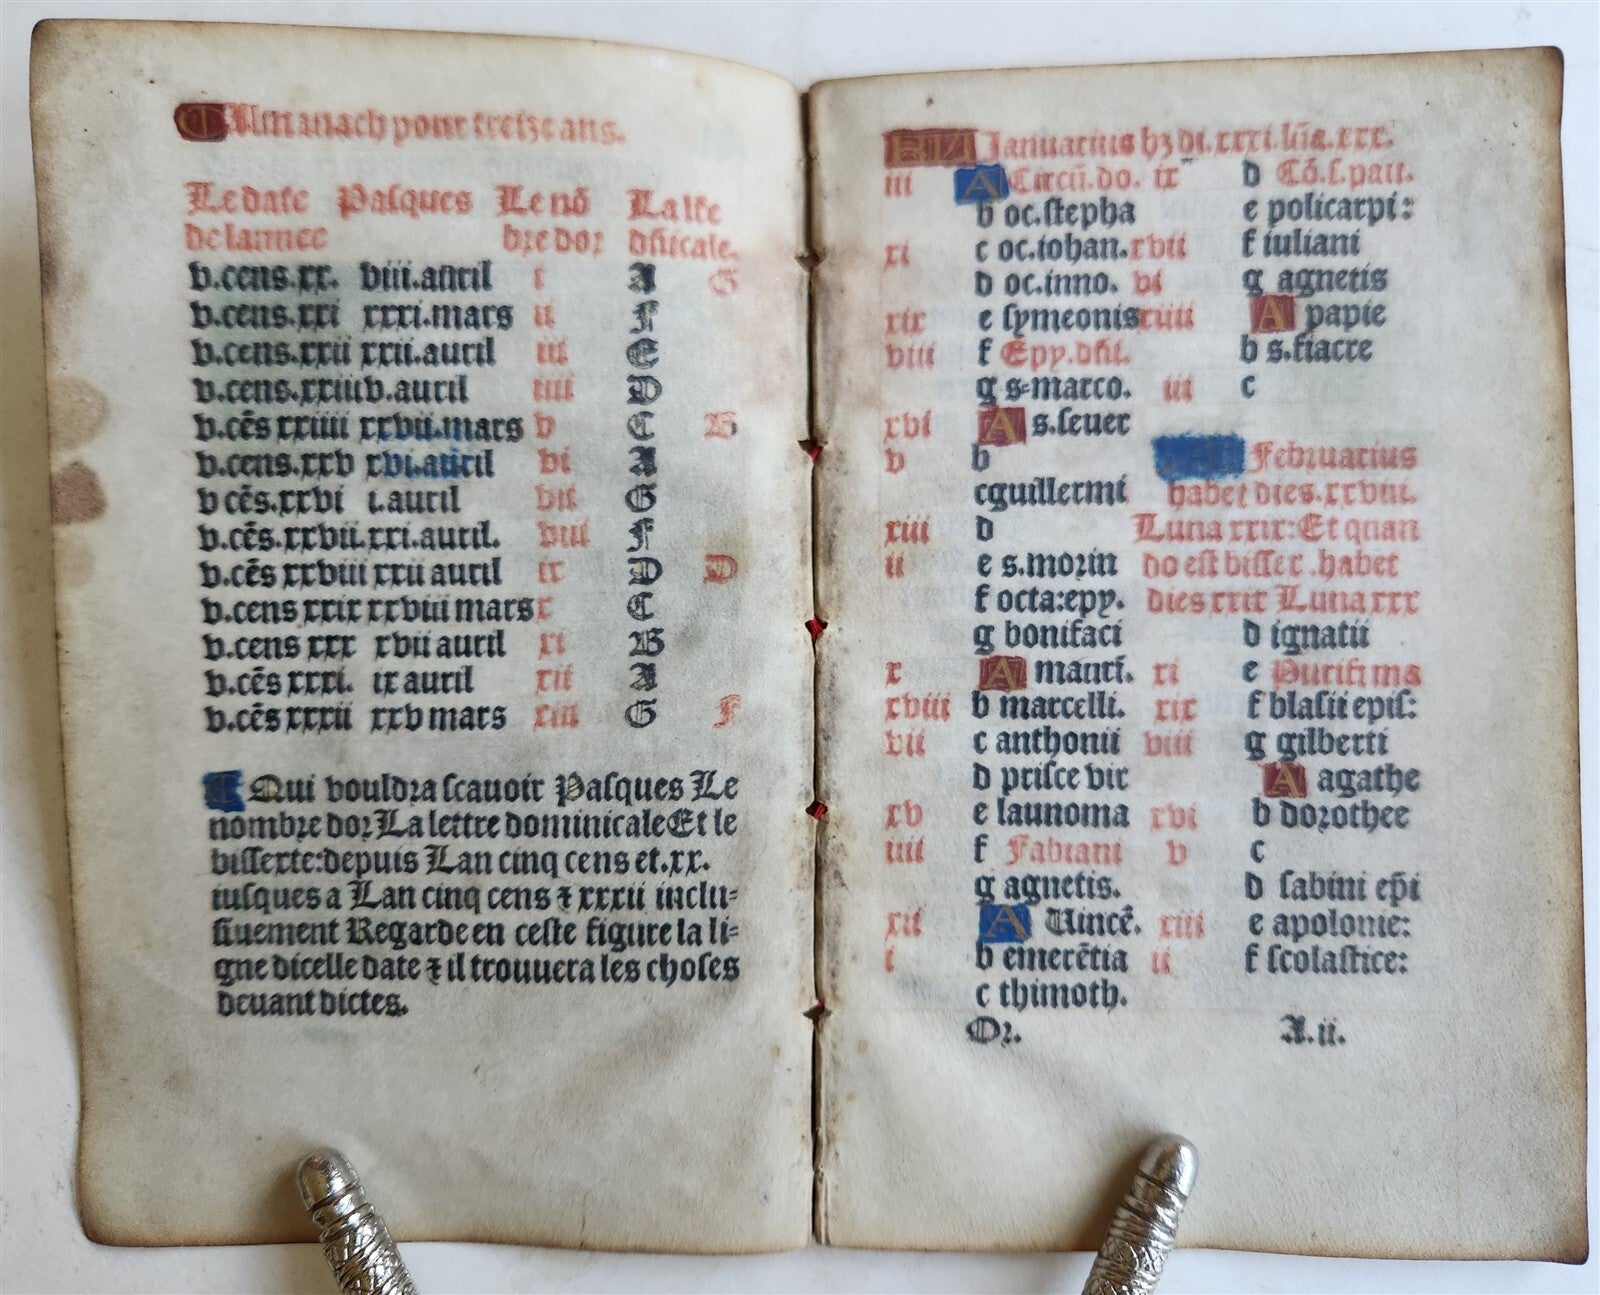 Almanach pour treize ans.
Le date Pasques Le nō La lr̄e
de lannee bre dor dn̄icale.
v.cens.xx. viii.auril i A G
v.cens.xxi xxxi.mars ii F
v.cens.xxii xxii.auril iii E
v.cens.xxiii v.auril iiii D
v.cēs xxiiii xxvii.mars v C B
v.cens.xxv xvi.auril vi A
v cēs.xxvi i.auril vii G
v.cēs.xxvii.xxi.auril. viii F
v.cēs xxviii xxii auril ix D D
v.cens xxix xxviii mars x C
v.cens xxx xvii auril xi B
v.cēs xxxi. ix auril xii A
v.cēs xxxii xxv mars xiii G F
Qui vouldra scauoir Pasques Le
nombre dor La lettre dominicale Et le
bissexte:depuis Lan cinq cens et.xx.
iusques a Lan cinq cens ⁊ xxxii inclu⸗
siuement Regarde en ceste figure la li⸗
gne dicelle date ⁊ il trouuera les choses
deuant dictes.
KL Januarius hꝫ di.xxxi.lūa.xxx.
iii A Circū.do.
b oc.stepha
xi c oc.iohan.
d oc.inno.
xix e symeonis
viii f Epy.dn̄i.
g s⸗marco.
xvi A s.seuer
v b
c guillermi
xiii d
ii e s.morin
f octa:epy.
g bonifaci
x A maurī.
xviii b marcelli.
vii c anthonii
d prisce vir
xv e launoma
iiii f Fabiani
g agnetis.
xii A Vincē.
i b emerētia
c thimoth.
ix d Cō.s.paū.
e policarpi:
xvii f iuliani
vi g agnetis
xiiii A papie
b s.fiacre
iii c
Februarius
habet dies.xxviii.
Luna xxix:Et quan
do est bissex.habet
dies xxix Luna xxx
d ignatii
xi e Purifi ma
xix f blasii epis:
viii g gilberti
A agathe
xvi b dorothee
v c
d sabini ep̄i
xiii e apolonie:
ii f scolastice:
Or. A.ii.